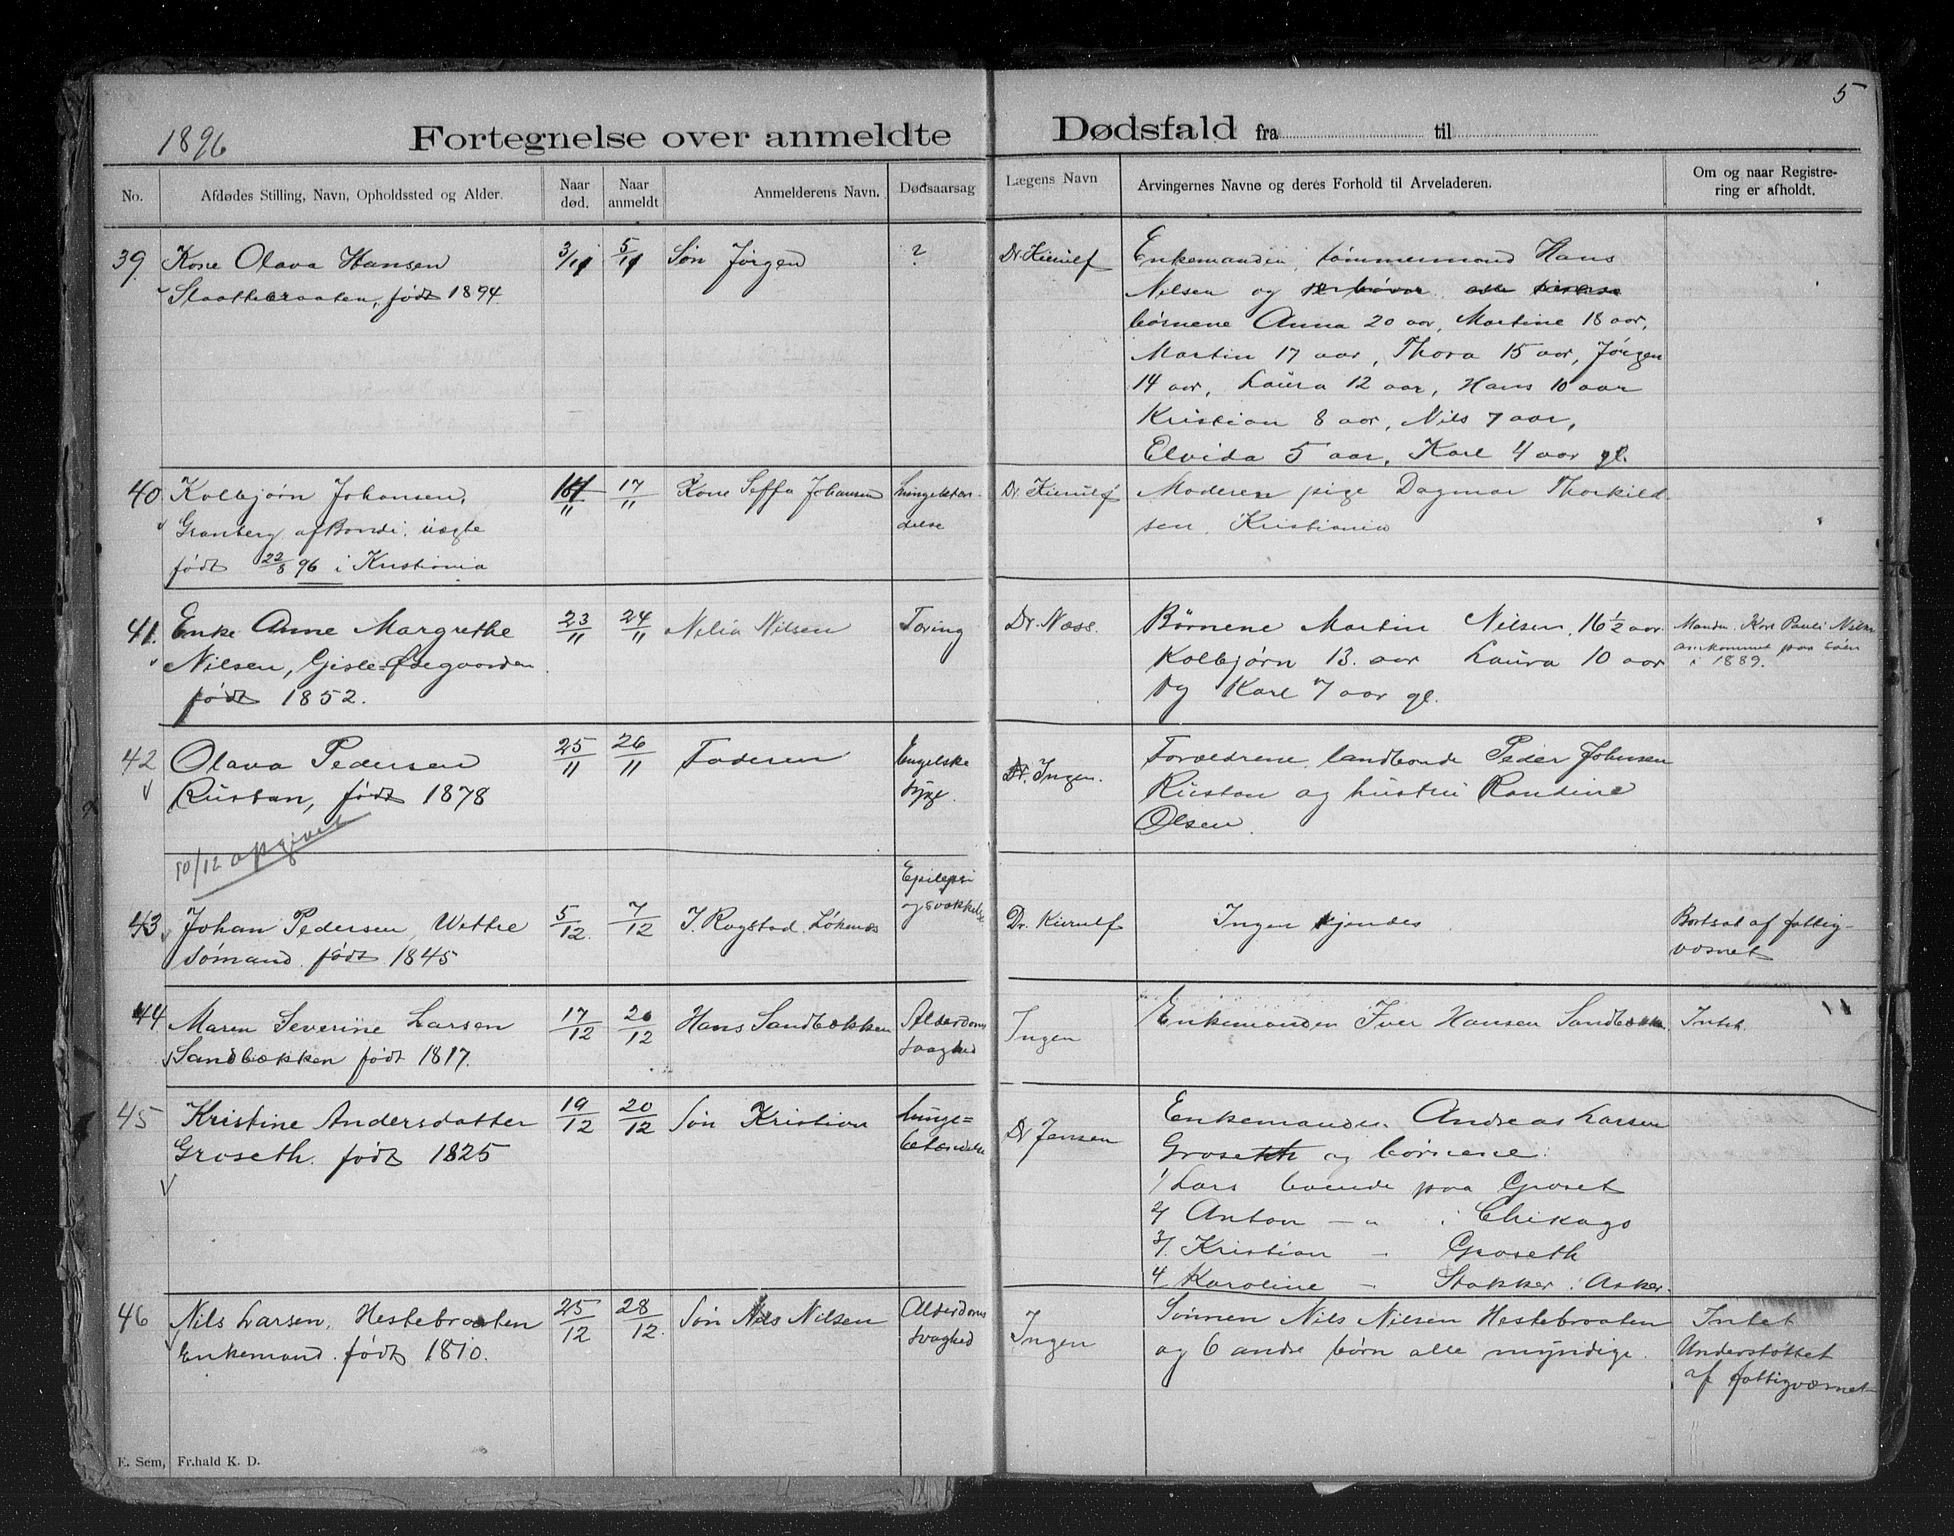 5
1896
Fortegnelse over anmeldte Dødsfald fra til
No.
Afdødes Stilling, Navn, Opholdssted og Alder.
Naar død.
Naar anmeldt
Anmelderens Navn.
Dødsaarsag
Lægens Navn
Arvingernes Navne og deres Forhold til Arveladeren.
Om og naar Registre-
ring er afholdt.
39. Kone Olava Hansen 3/11 5/11 Søn Jørgen ? Dr. Kierulf Enkemanden, tømmermand Hans
Slaattebraaten, født 1894 Nilsen og
børnene Anna 20 aar, Martine 18 aar,
Martin 17 aar, Thora 15 aar, Jørgen
14 aar, Laura 12 aar, Hans 10 aar
Kristian 8 aar, Nils 7 aar,
Elvida 5 aar, Karl 4 aar gl.
40 Kolbjørn Johansen, 17/11 Kone Seffa Johansen Lungebetæn- Dr. Kierulf Moderen pige Dagmar Thorkild-
Granberg af Bondi, uægte delse sen, Kristiania
født 22/8 96 i Kristiania
41. Enke Anne Margrethe 23/11 24/11 Nelia Nilsen Tæring Dr. Næss. Børnene Martin Nilsen, 16½ aar Manden, Kore Pauli Nilsen
Nilsen, Gisle-Ødegaarden Kolbjørn 13. aar Laura 10 aar omkommet paa søen
født 1852. og Karl 7 aar gl. i 1889.
42 Olava Pedersen 25/11 26/11 Faderen Engelske Dr. Ingen. Forældrene, landbonde Peder Johnsen
Rustan, født 1878 syge. Rustan og hustru Randine
Olsen.
10/12 opgivet
43 Johan Pedersen, Wettre 5/12 7/12 J. Rogstad, Løkenæs Epilepsi Dr. Kierulf Ingen kjendes Bortsat af fattig-
Sømand, født 1845 og svækkelse væsnet
44 Maren Severine Larsen 17/12 20/12 Hans Sandbækken Alderdoms Ingen Enkemanden Iver Hansen Sandbækken Intet
Sandbækken født 1817. svaghed
45 Kristine Andersdatter 19/12 20/12 Søn Kristian Lunge= Dr Jensen Enkemanden Andreas Larsen
Groseth. født 1825 betændelse Groseth og børnene:
1/ Lars boende paa Groset
2/ Anton — " i Chikago
3/. Kristian — Groseth
4 Karoline — Stokker i Asker.
46 Nils Larsen, Hestebraaten 25/12 28/12. Søn Nils Nilsen Alderdoms Ingen Sønnen Nils Nilsen Hestebraaten Intet
Enkemand. født 1810. svaghed og 6 andre børn alle myndige. Understøttet
af fattigvæsnet
E. Sem, Fr.hald K. D.